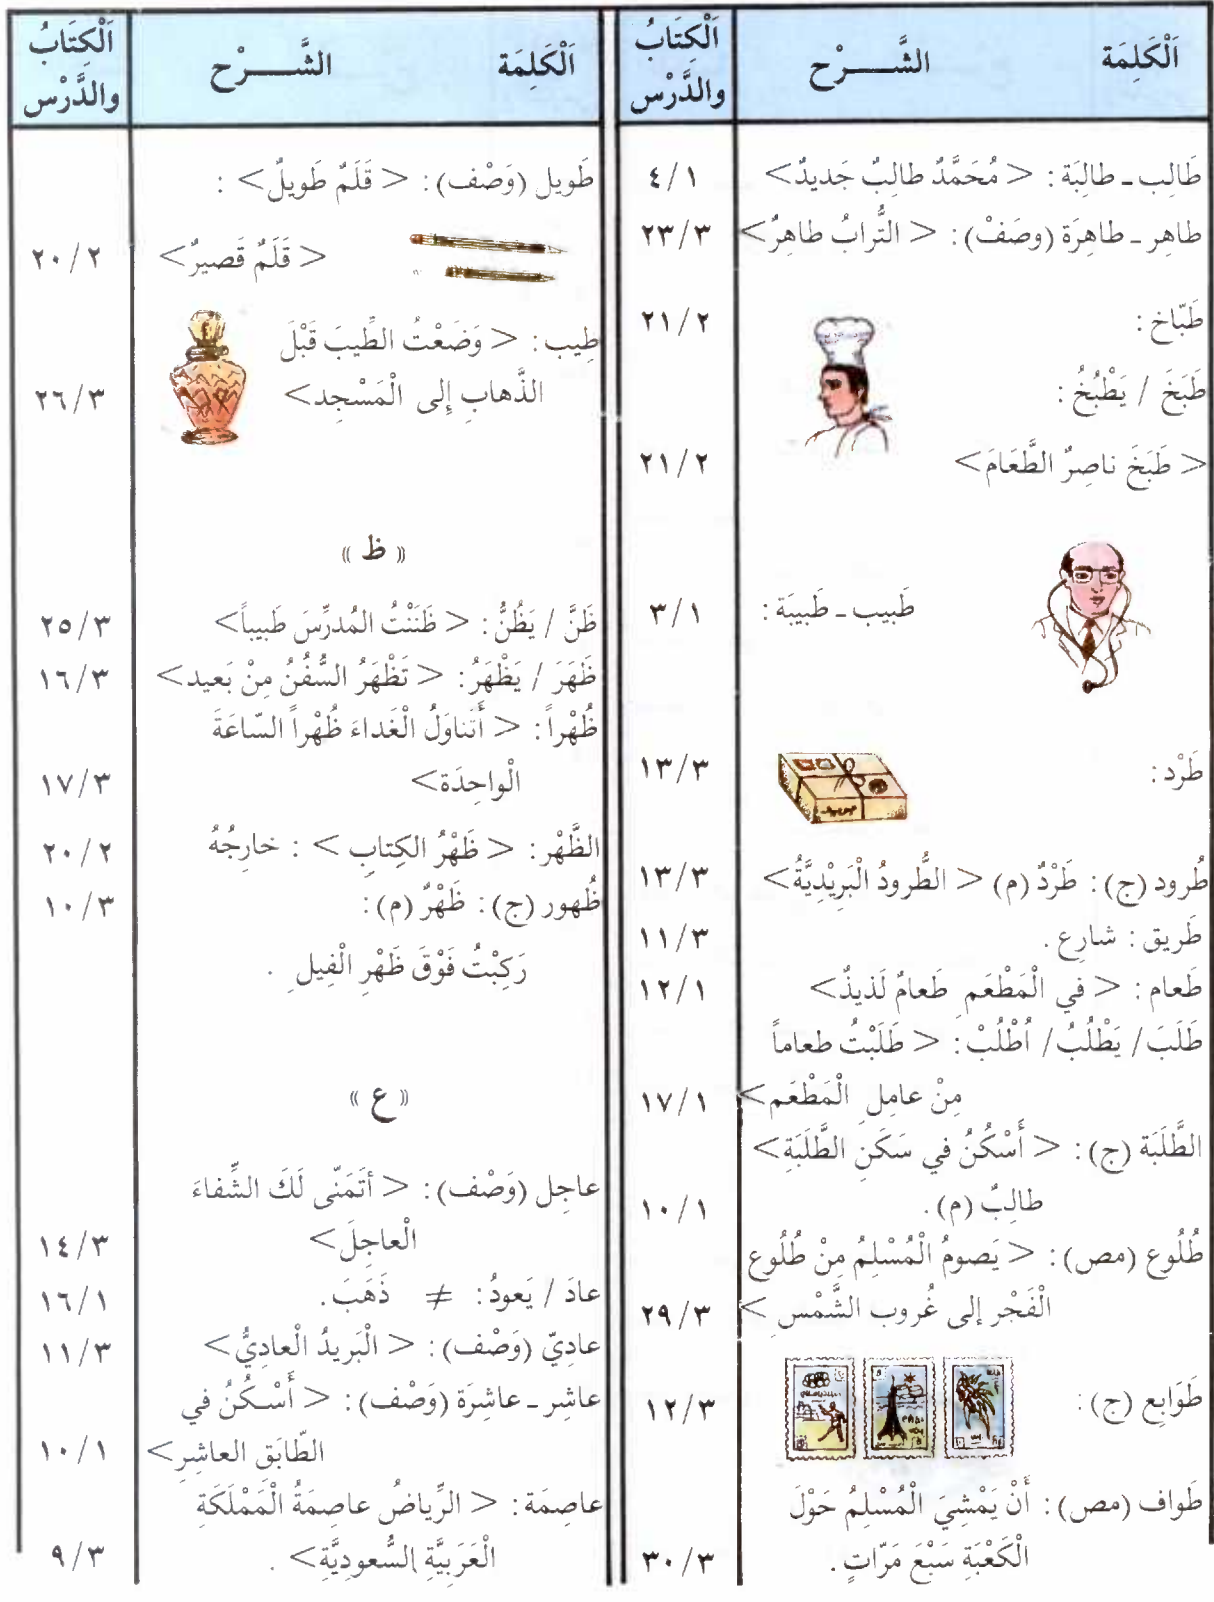 اَلْكَلِمَة الشَّـــرْح اَلْكِتَابُ والدَّرْس
طَالِب ـ طالِبَة : < مُحَمَّدٌ طالِبٌ جَديدٌ> ٤/١
طاهِر ـ طاهِرَة (وصَفْ) : < التُّرابُ طاهِرٌ> ٢٣/٣
طَبّاخ : ٢١/٢
طَبَخَ / يَطْبُخُ :
< طَبَخَ ناصِرٌ الطَّعَامَ> ٢١/٢
طَبيب ـ طَبيبَة : ٣/١
طَرْد : ١٣/٣
طُرود (ج) : طَرْدٌ (م) < الطُّرودُ الْبَرِيْدِيَّةُ> ١٣/٣
طَريق : شارِع . ١١/٣
طَعام : < في الْمَطْعَمِ طَعامٌ لَذيذٌ> ١٢/١
طَلَبَ / يَطْلُبُ / اُطْلُبْ : < طَلَبْتُ طعاماً
مِنْ عامِلِ الْمَطْعَم> ١٧/١
الطَّلَبَة (ج) : < أَسْكُنُ في سَكَنِ الطَّلَبَةِ>
طالِبٌ (م) . ١٠/١
طُلُوع (مص) : < يَصومُ الْمُسْلِمُ مِنْ طُلُوع
الْفَجْر إلى غُروب الشَّمْسِ > ٢٩/٣
طَوَابِع (ج) : ١٢/٣
طَواف (مص) : أَنْ يَمْشِيَ الْمُسْلِمُ حَوْلَ
الْكَعْبَةِ سَبْعَ مَرّاتٍ . ٣٠/٣
اَلْكَلِمَة الشَّـــرْح اَلْكِتَابُ والدَّرْس
طَويل (وَصْف) : < قَلَمٌ طَويلٌ> :
< قَلَمٌ قَصيرٌ> ٢٠/٢
طِيب : < وَضَعْتُ الطِّيبَ قَبْلَ
الذَّهابِ إِلى الْمَسْجِد> ٢٦/٣
« ظ »
ظَنَّ / يَظُنُّ : < ظَنَنْتُ المُدرِّسَ طَبيباً> ٢٥/٣
ظَهَرَ / يَظْهَرُ : < تَظْهَرُ السُّفُنُ مِنْ بَعيد> ١٦/٣
ظُهْراً : < أَتَناوَلُ الْغَداءَ ظُهْراً السّاعَةَ
الْواحِدَة> ١٧/٣
الظَّهْر : < ظَهْرُ الكِتابِ > : خارِجُهُ ٢٠/٢
ظُهور (ج) : ظَهْرٌ (م) : ١٠/٣
رَكِبْتُ فَوْقَ ظَهْرِ الْفِيلِ .
« ع »
عاجِل (وَصْف) : < أتَمَنّى لَكَ الشِّفاءَ
الْعاجِلَ> ١٤/٣
عادَ / يَعودُ : ≠ ذَهَبَ . ١٦/١
عادِيّ (وَصْف) : < الْبَريدُ الْعادِيُّ> ١١/٣
عاشِر ـ عاشِرَة (وَصْف) : < أَسْكُنُ في
الطّابَقِ العاشِرِ> ١٠/١
عاصِمَة : < الرِّياضُ عاصِمَةُ الْمَمْلَكَةِ
الْعَرَبِيَّةِ السُّعودِيَّةِ> . ٩/٣